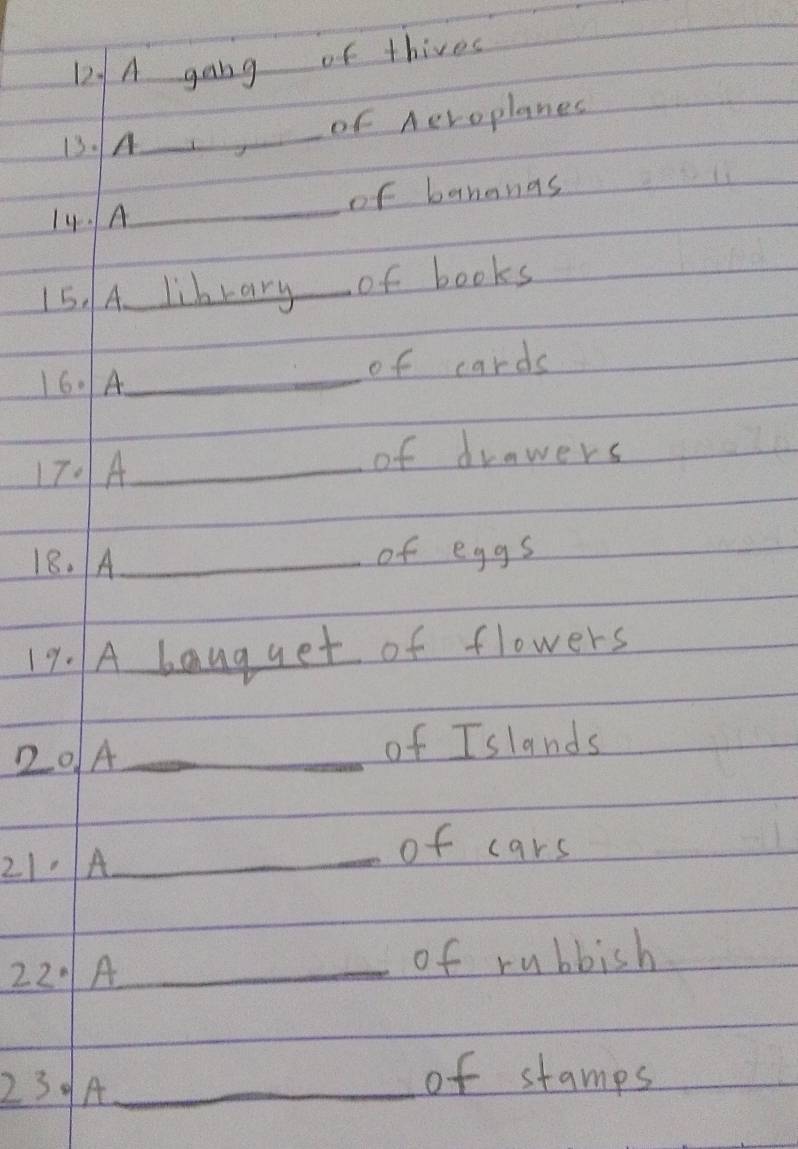 12. A gang of thives
13. A ______ of Aeroplanes
14. A ______ of bananas
15. A library of books
16. A ______ of cards
17. A ______ of drawers
18. A ______ of eggs
19. A bouquet of flowers
20. A ______ of Islands
21. A ______ of cars
22. A ______ of rubbish
23. A ______ of stamps